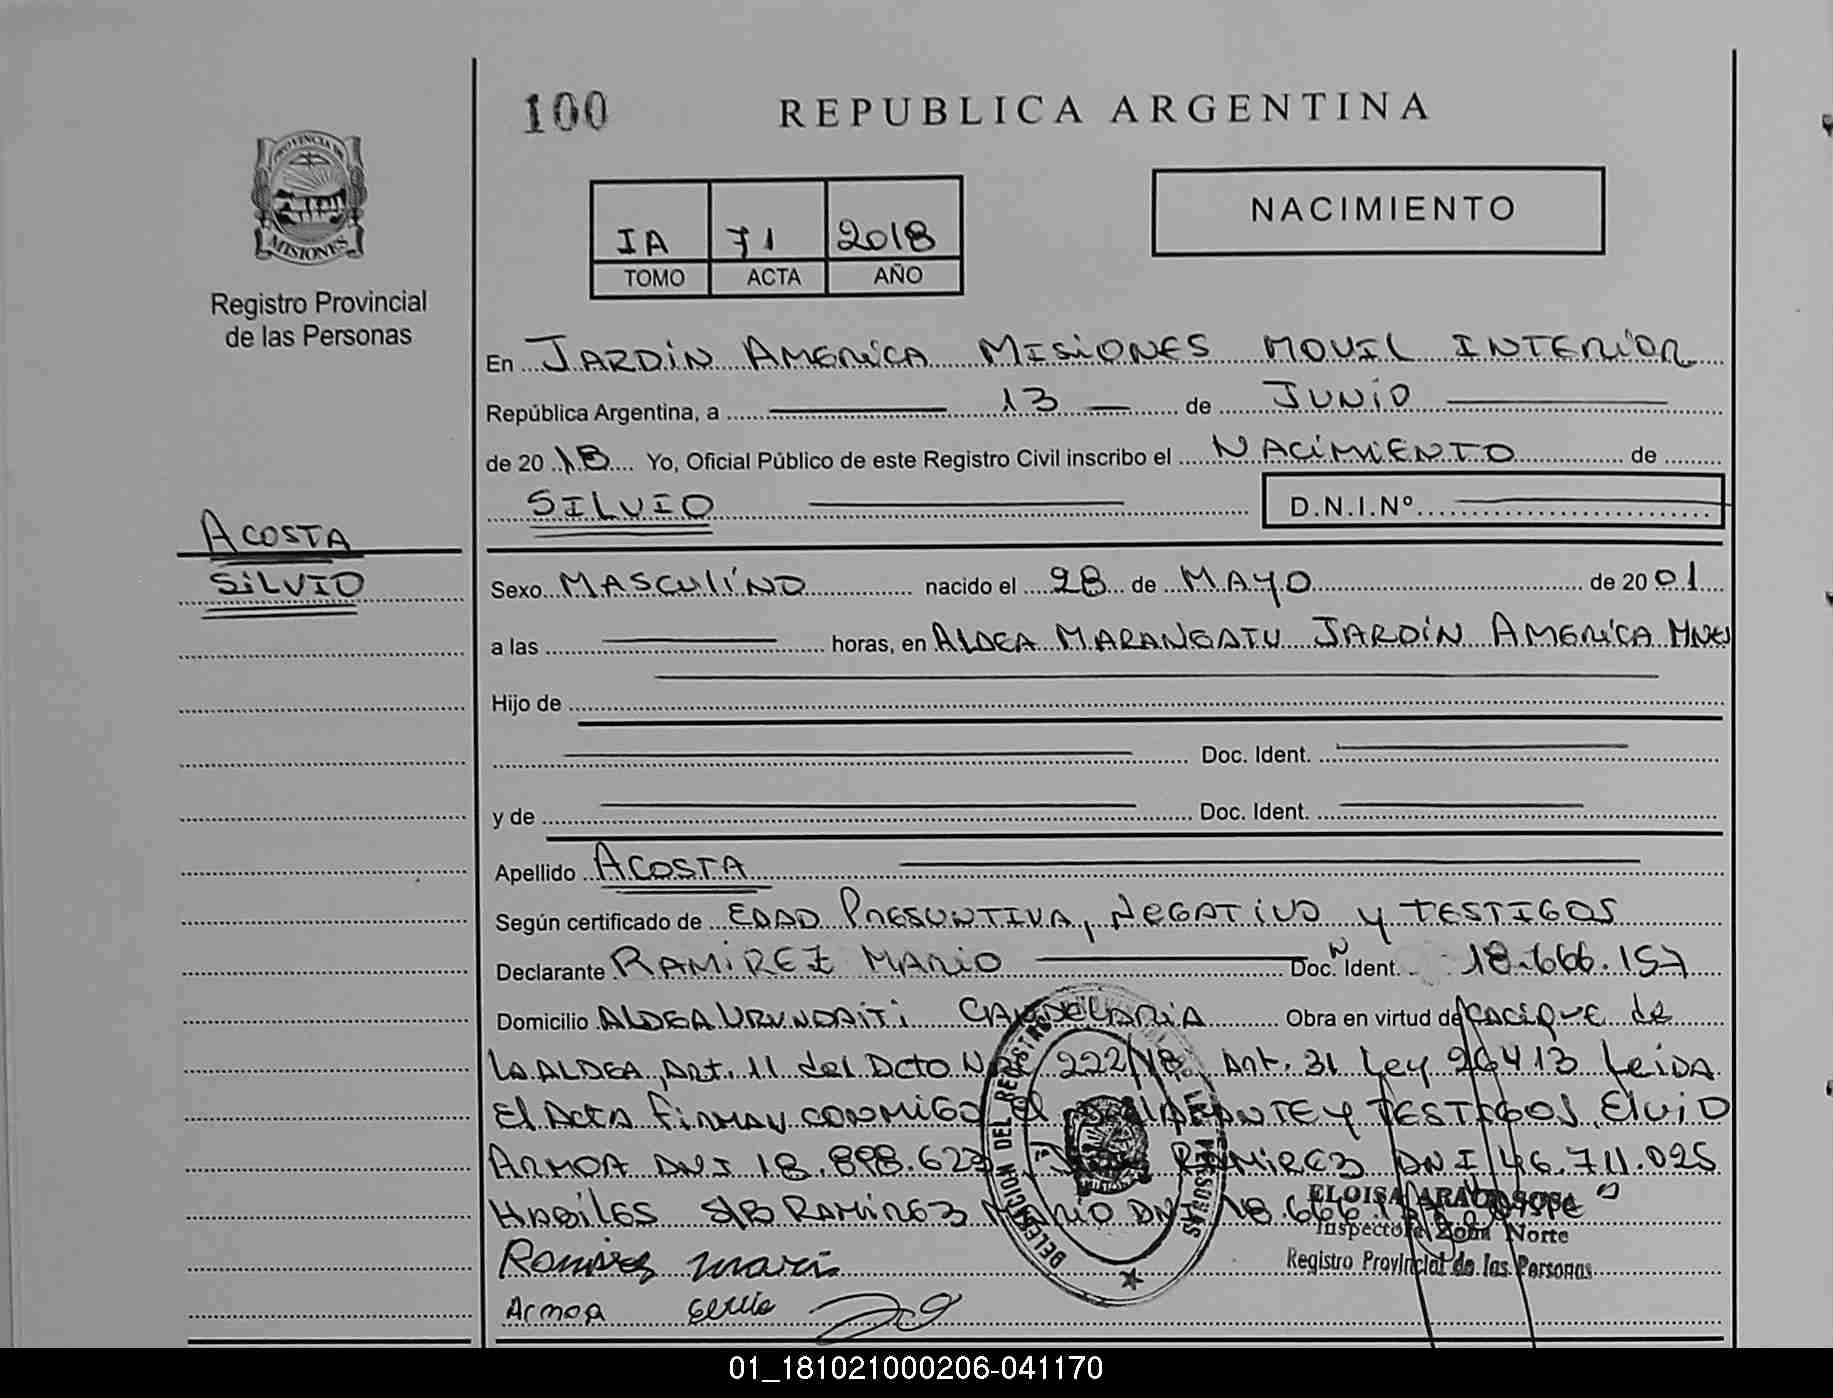 100
REPUBLICA ARGENTINA
PROVINCIA DE
MISIONES
Registro Provincial
de las Personas
NACIMIENTO
IA 71 2018
TOMO ACTA AÑO
En JARDIN AMERICA MISIONES MOVIL INTERIOR
República Argentina, a 13 de JUNIO
de 20 18 Yo, Oficial Público de este Registro Civil inscribo el NACIMIENTO de
SILVIO D.N.I.Nº
ACOSTA
SILVIO
Sexo MASCULINO nacido el 28 de MAYO de 20 01
a las horas, en ALDEA MARANGATU JARDIN AMERICA MNES
Hijo de
Doc. Ident.
y de Doc. Ident.
Apellido ACOSTA
Según certificado de EDAD PRESUNTIVA, NEGATIVO y TESTIGOS
Declarante RAMIREZ MARIO Doc. Ident. N 18.666.157
Domicilio ALDEA URUNDAITI CANDELARIA Obra en virtud de CACIQUE de
LA ALDEA, Art. 11 del DCTO N 222/18 Art. 31 Ley 26413 Leida
El Acta Firman conmigo el y TESTIGOS Elvio
ARMOA DNI 18.898.623 RAMIREZ DNI 46.711.025
HABILES S/B RAMIREZ MARIO DNI 18.666.
ELOISA ARAUJO SOSA
Inspectora Zona Norte
Registro Provincial de las Personas
DELEGACION DEL REGISTRO PROVINCIAL DE LAS PERSONAS
Ramirez mario
Armoa elvio
01_181021000206-041170